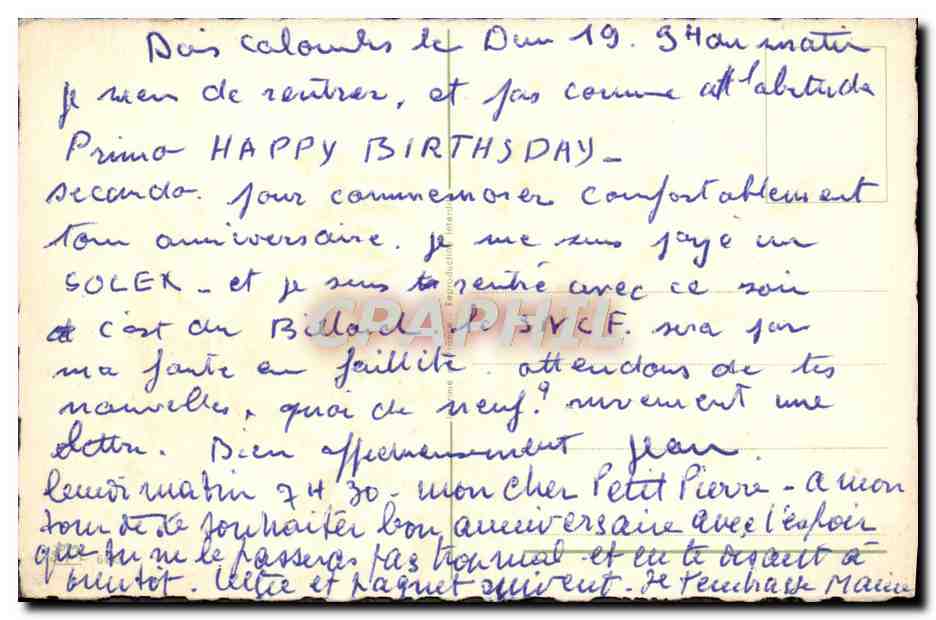 Bois Colombes le Dim 19. 9H du matin
je viens de rentrer, et pas comme d'habitude
Primo HAPPY BIRTHSDAY -
secundo. pour commemorer confortablement
ton anniversaire. je me suis payé un
SOLEX - et je suis rentré avec ce soir
c'est du Billard. la SNCF. sera par
ma faute en faillite. attendons de tes
nouvelles, quoi de neuf? vivement une
lettre. Bien affectueusement Jean.
Lundi matin 7H30 - mon cher Petit Pierre - a mon
tour de te souhaiter bon anniversaire avec l'espoir
que tu ne le passeras pas trop mal et en te disant à
bientôt. lettre et paquet suivent. Je t'embrasse
CPAPHIL
Reproduction interdite